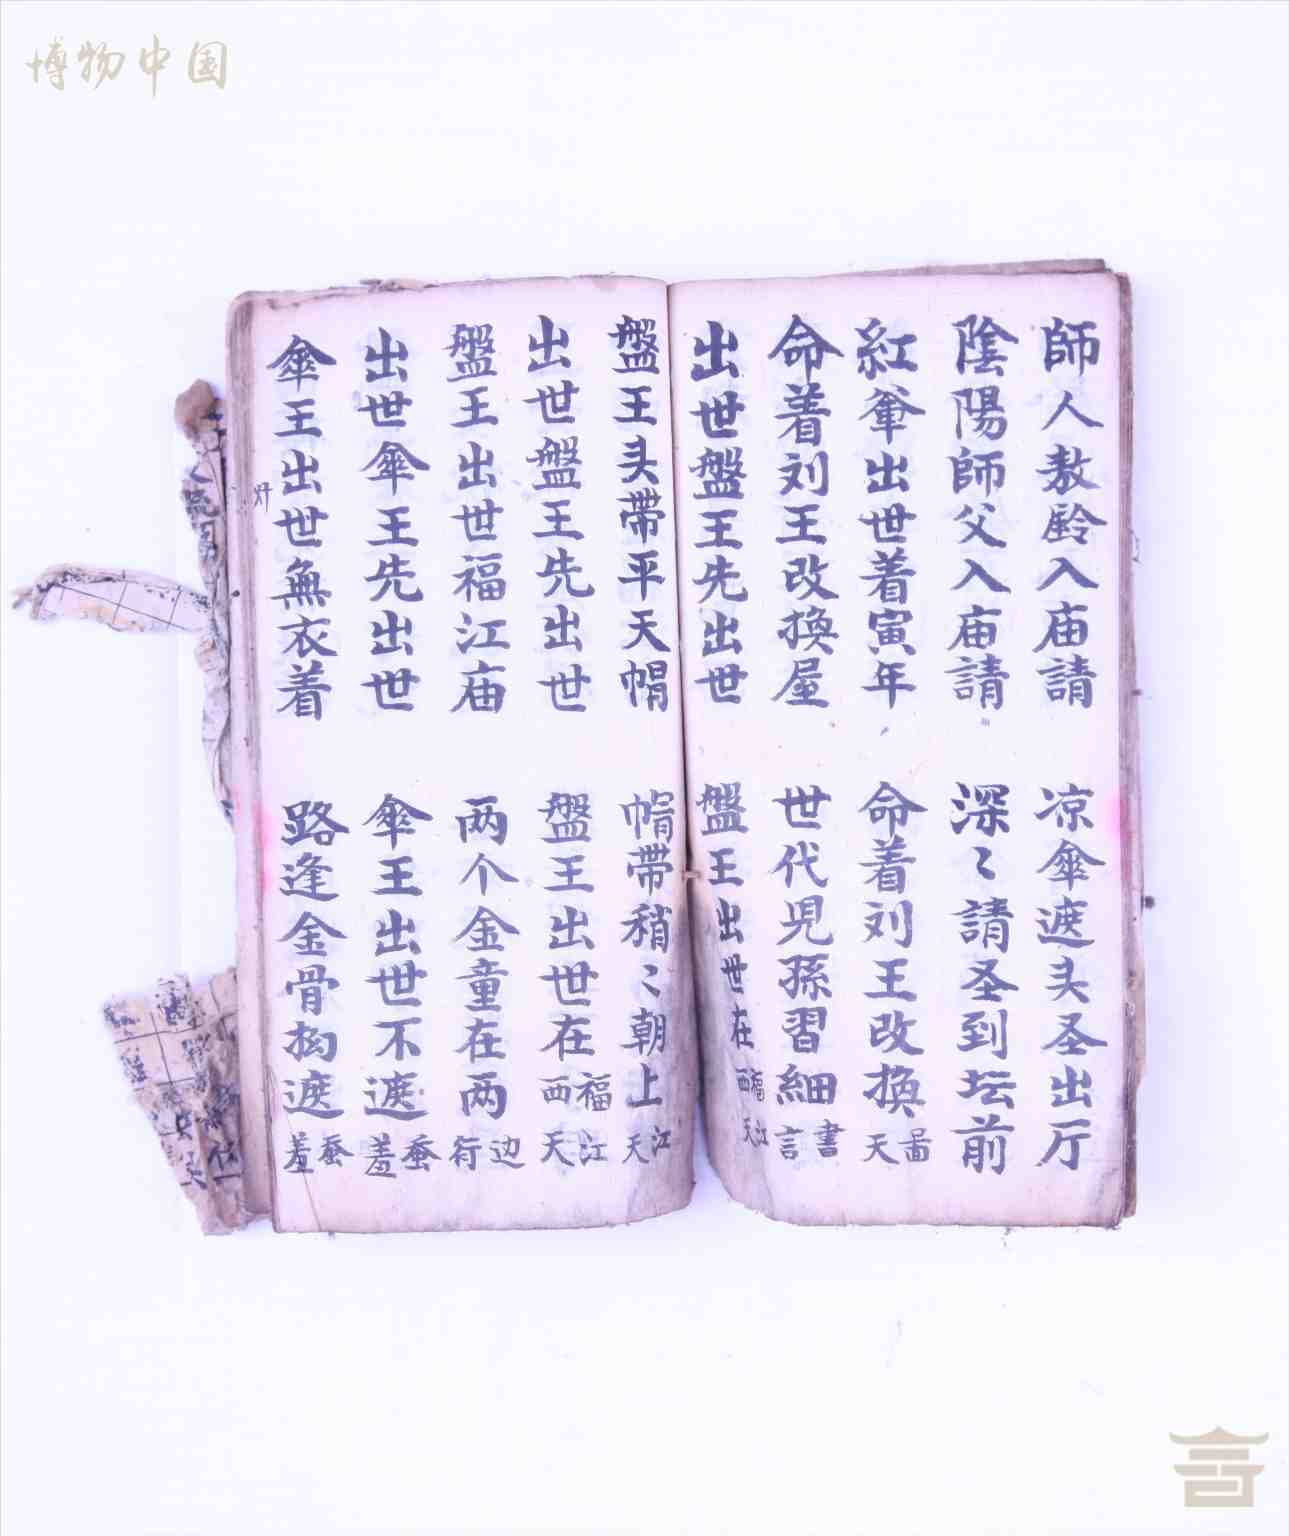 博物中国
師人敖齡入庙請
凉傘遮头圣出厅
陰陽師父入庙請
深〻請圣到坛前
紅爷出世着寅年
命着刘王改換天啚
命着刘王改換屋
世代児孫習細言書
出世盤王先出世
盤王出世在西天福江
盤王头帶平天帽
帽帶稍〻朝上天江
出世盤王先出世
盤王出世在西天福江
盤王出世福江庙
两个金童在两行边
出世傘王先出世
傘王出世不遮羞蚕
傘王出世無衣着
路逢金骨遮羞蚕